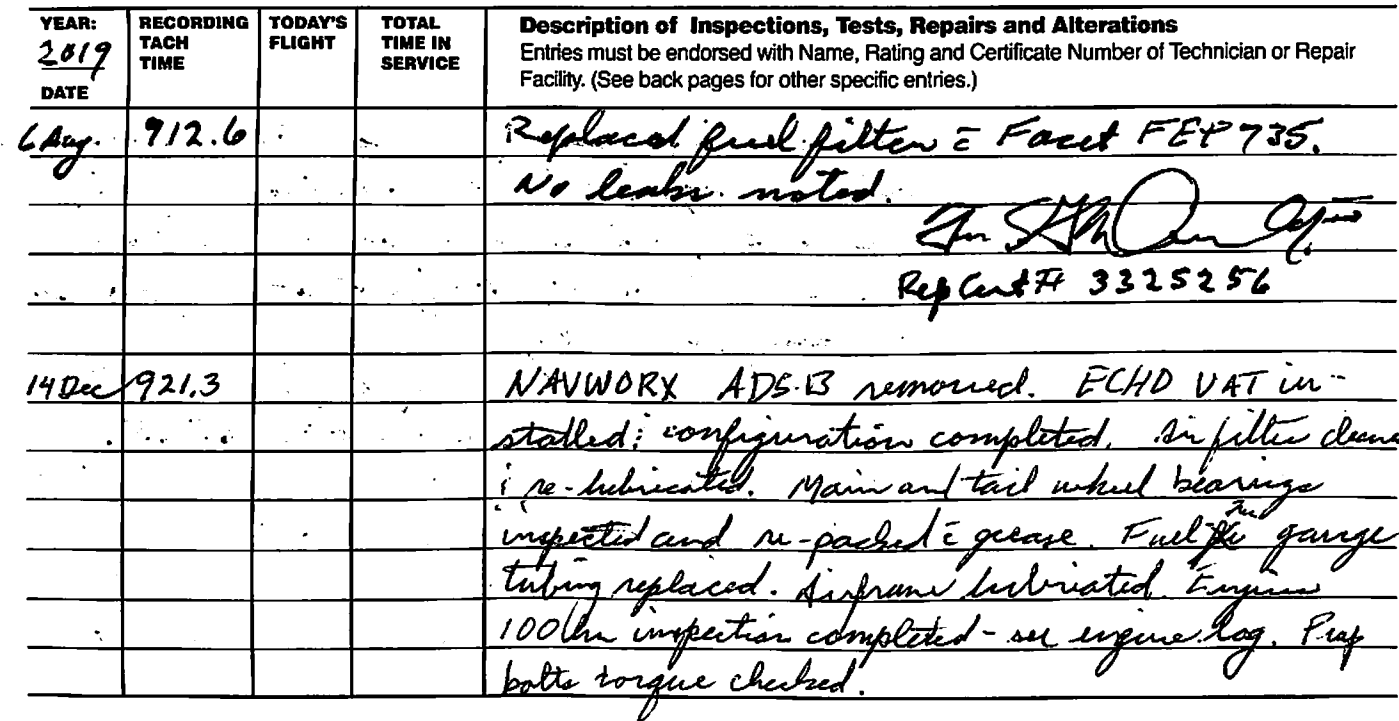 YEAR: 2019 DATE RECORDING TACH TIME TODAY'S FLIGHT TOTAL TIME IN SERVICE Description of Inspections, Tests, Repairs and Alterations
Entries must be endorsed with Name, Rating and Certificate Number of Technician or Repair
Facility. (See back pages for other specific entries.)
6 Aug. 912.6 Replaced fuel filter c̄ Facet FEP 735.
No leaks noted.
Rep Cert # 3325256
14 Dec 921.3 NAVWORX ADS-B removed. ECHO UAT in-
stalled; configuration completed. Air filter cleane
; re-lubricated. Main and tail wheel bearings
inspected and re-packed c̄ grease. Fuel gauge
tubing replaced. Airframe lubricated. Engine
100 hr inspection completed - see engine log. Prop
bolts torque checked.